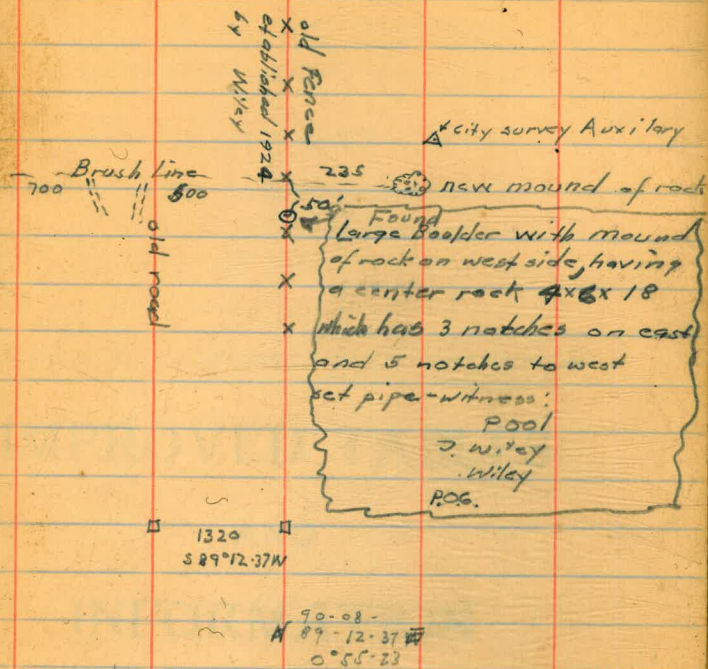 old Fence
etablished 1924
by Wiley
city survey Auxilary
Brush line
700
500
235
new mound of rock
50'
old road
Found
Large Boolder with mound
of rock on west side, having
a center rock 4x6x18
which has 3 notches on east
and 5 notches to west
set pipe-witness:
Pool
J. Wiley
Wiley
P.O.G.
1320
S 89°12-37W
90-08-
N 89-12-37 W
0°55-23